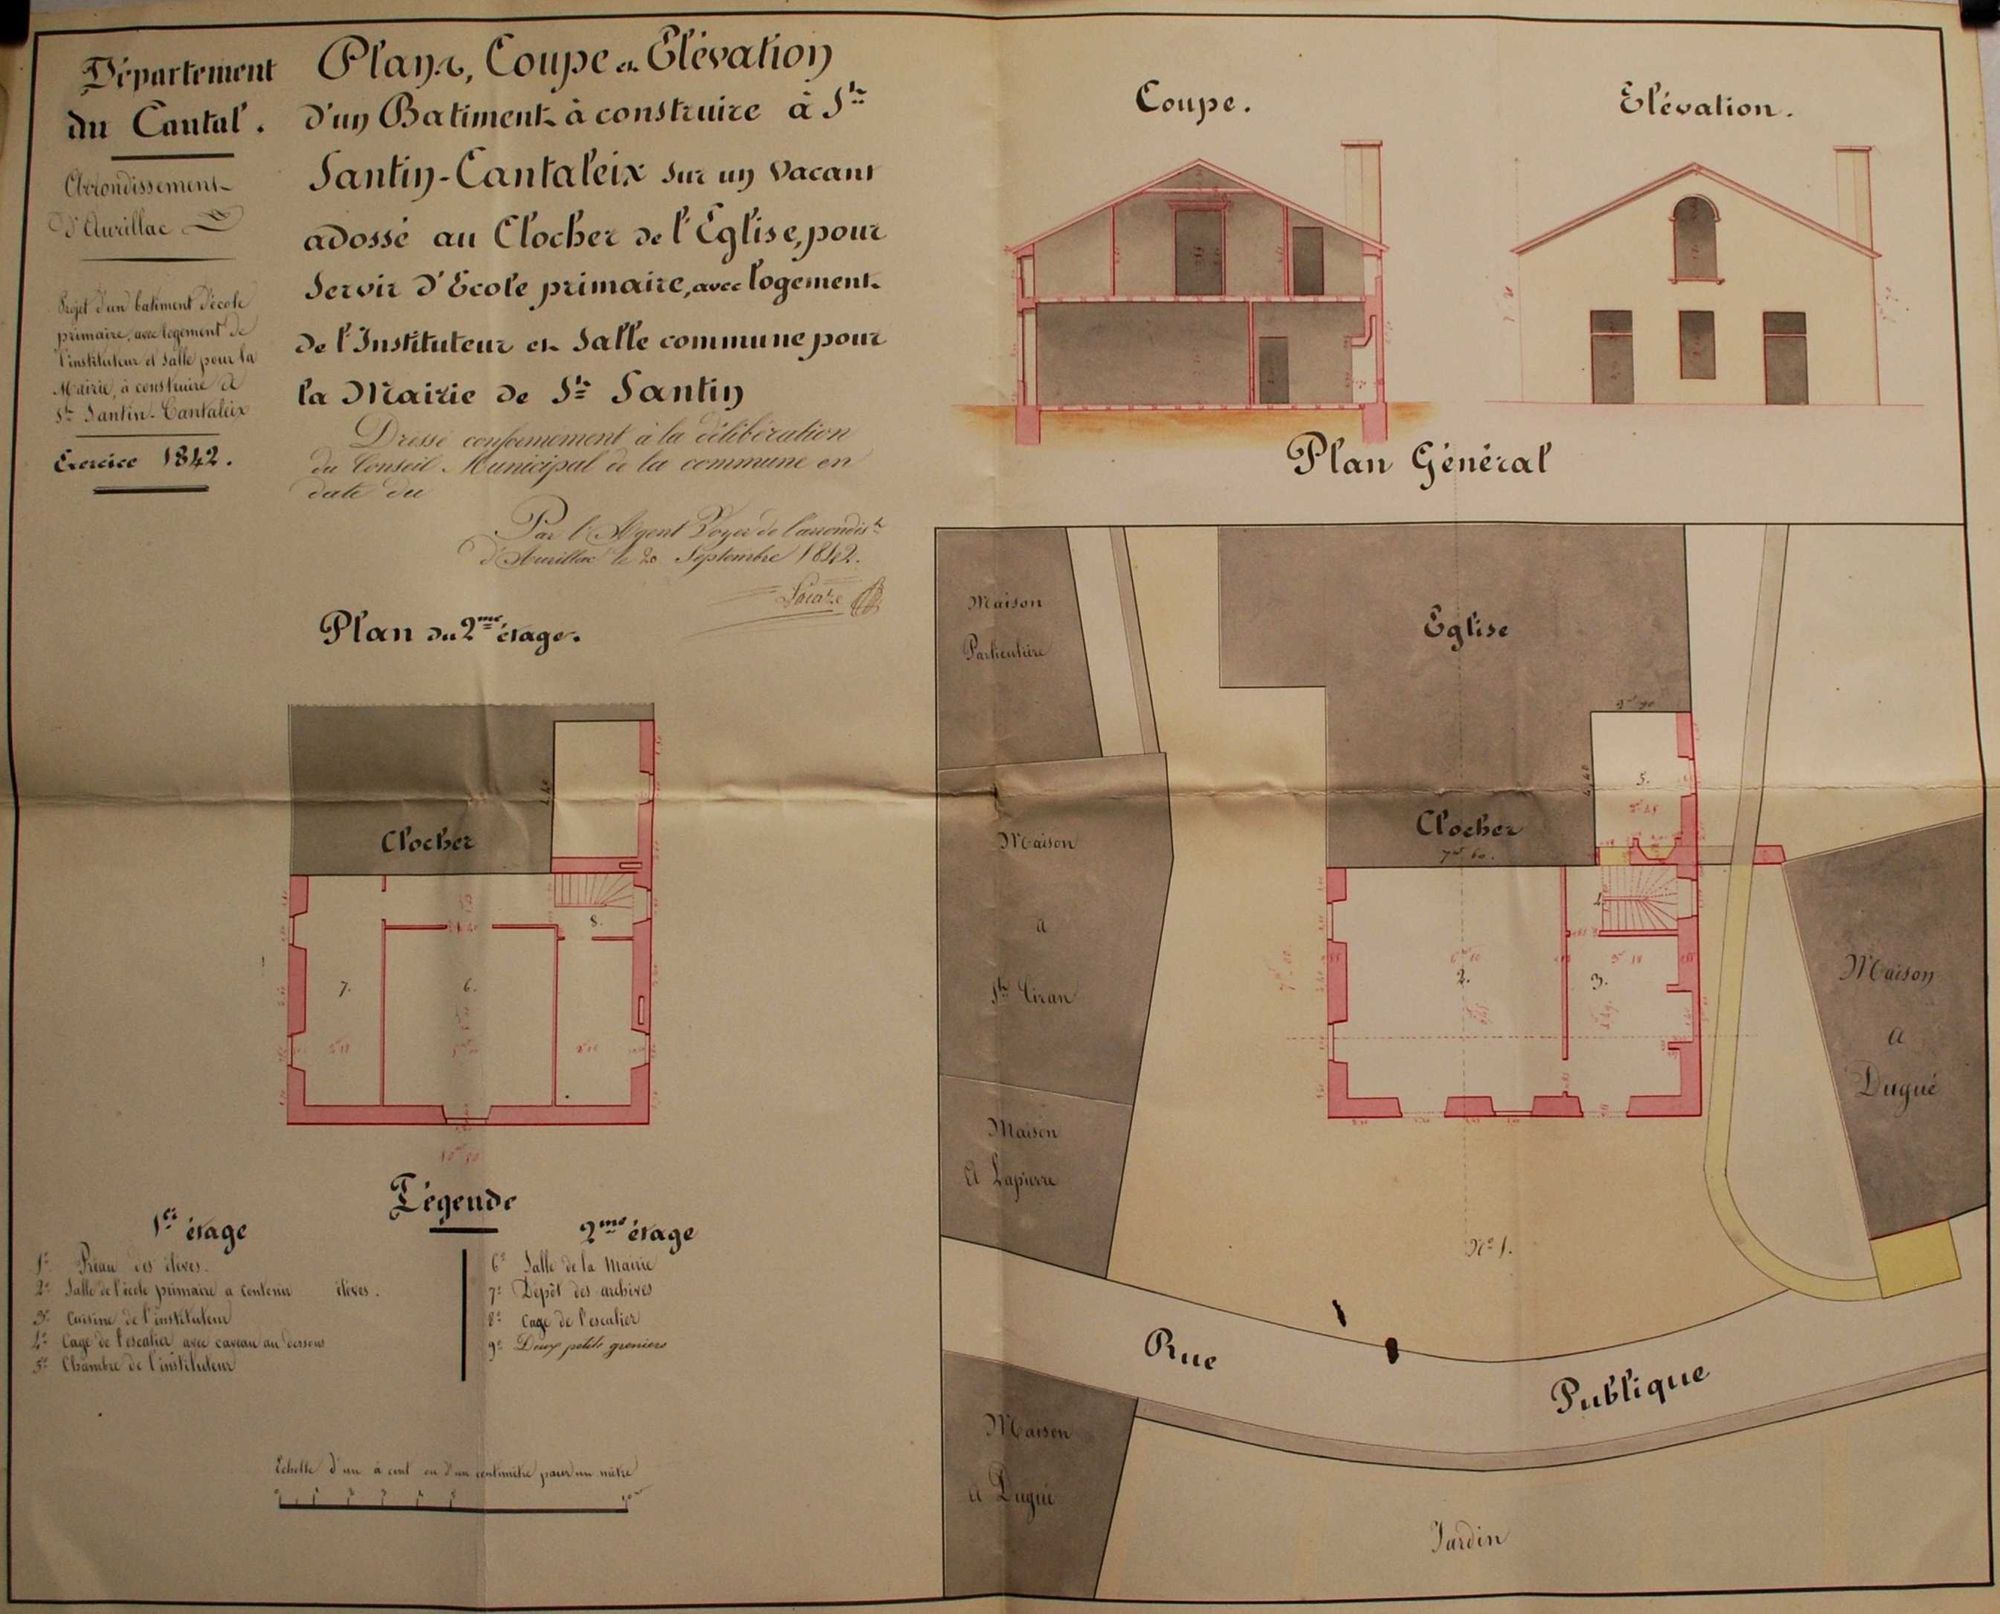 Département
du Cantal.
Arrondissement
d'Aurillac
Projet d'un batiment d'école
primaire, avec logement de
l'instituteur et Salle pour la
Mairie, à construire à
St Santin-Cantaleix
Exercice 1842.
Plans, Coupe et Elévation
d'un Batiment à construire à St
Santin-Cantaleix sur un vacant
adossé au Clocher de l'Eglise, pour
Servir d'Ecole primaire, avec logement
de l'Instituteur et Salle commune pour
la Mairie de St Santin
Dressé conformément à la délibération
du Conseil Municipal de la commune en
date du
Par l'Agent Voyer de l'arrondist
d'Aurillac le 20 Septembre 1842.
Coupe.
Elévation.
Plan Général
Maison
Particulière
Eglise
Clocher
7m 60.
4.40
5.
Maison
a
St Ciran
2.
3.
4.
Maison
a
Dugué
Maison
a Lapierre
No 1.
Rue Publique
Maison
a Dugué
Jardin
Plan du 2me étage.
Clocher
4.40
7.
6.
8.
Légende
1er étage
1o Préau des élèves.
2o Salle de l'école primaire a contenir élèves.
3o Cuisine de l'instituteur
4o Cage de l'escalier avec caveau au dessous
5o Chambre de l'instituteur
2me étage
6o Salle de la Mairie
7o Dépôt des archives
8o Cage de l'escalier
9o Deux petits greniers
Echelle d'un à cent ou d'un centimètre pour un mètre